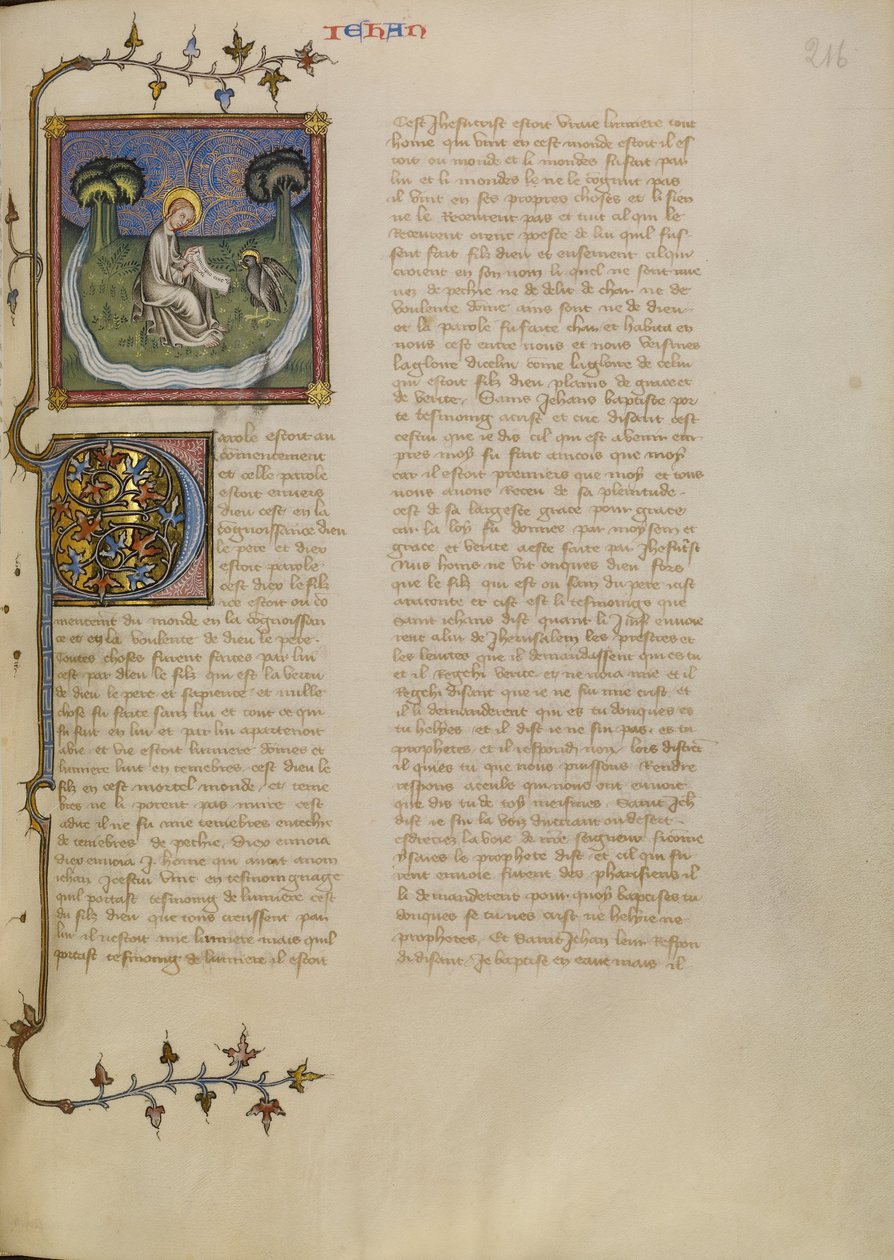 IEHAN
216
Parole estoit au
comencement
et celle parole
estoit envers
dieu cest en la
cognoissance dieu
le pere et diex
estoit parole
cest diex le filz
ice estoit ou co
mencement du monde en la cognoissan
ce et en la voulente de dieu le pere.
Toutes choses furent faites par lui
cest par dieu le filz qui est la vertu
de dieu le pere et sapience et nulle
chose fu faite sanz lui et tout ce qui
fu fait en lui et par lui apartenoit
a vie et vie estoit lumiere domes et
lumiere luit en tenebres cest dieu le
filz en cest mortel monde et tene
bres ne li porent pas nuire cest
adire il ne fu mie tenebres
de tenebres de pechie, diex envoia
diex envoia .I. home qui avoit a nom
iehan Icestui vint en tesmoingnage
quil portast tesmoing de lumiere cest
du filz dieu que tous creussent par
lui il nestoit mie lumiere mais quil
portast tesmoing de lumiere il estoit
Cest Jhesucrist estoit vraie lumiere tout
home qui vint en cest monde estoit il es
toit ou monde et li mondes fu fait par
lui et li mondes le ne le cognut pas
il vint en ses propres choses et li sien
ne le Receurent pas et tuit cil qui le
Receurent orent poeste de lui quil fus
sent fait filz dieu et ensement cil qui
croient en son nom li quel ne sont mie
nez de pechie ne de delit de char ne de
voulente dome ains sont ne de dieu
et la parole fu faite char et habita en
nous cest entre nous et nous veismes
la gloire dicelui come la gloire de celui
qui estoit filz dieu plains de grace et
de verite. Sains Jehans baptiste por
te tesmoing a crist et crie disant cest
cestui que ie dis cil qui est a venir em
pres moy fu fait aincois que moy
car il estoit premiers que moy et tous
nous avons Receu de sa plenitude.
cest de sa largesce grace pour grace
car la loy fu donnee par moysem et
grace et verite a este faite par Jhesucrist
Nus homs ne vit onques dieu fors
que le filz qui est ou sain du pere icist
a raconte et cist est li tesmoings que
Saint iehans dist quant li Juif envoie
rent a lui de Jherusalem les prestres et
les levites que il demandassent qui es tu
et il Regehi verite et ne noia mie et il
Regehi disant que ie ne sui mie crist et
il li demanderent qui es tu donques es
tu helyes et il dist ie ne sui pas. es tu
prophetes et il respondi non. lors distrent
il qui es tu que nous puissons Rendre
respons a ceuls qui nous ont envoie
que dis tu de toy meismes. Saint Jeh
dist ie sui la voiz du criant ou desert.
esdreciez la voie de nostre seigneur sicome
ysaies le prophete dist et cil qui fu
rent envoie furent des pharisiens il
li demanderent pour quoy baptises tu
donques se tu nes crist ne helyie ne
prophetes. Et Saint Jehan leur Respon
di disant. Je baptist en eaue mais il